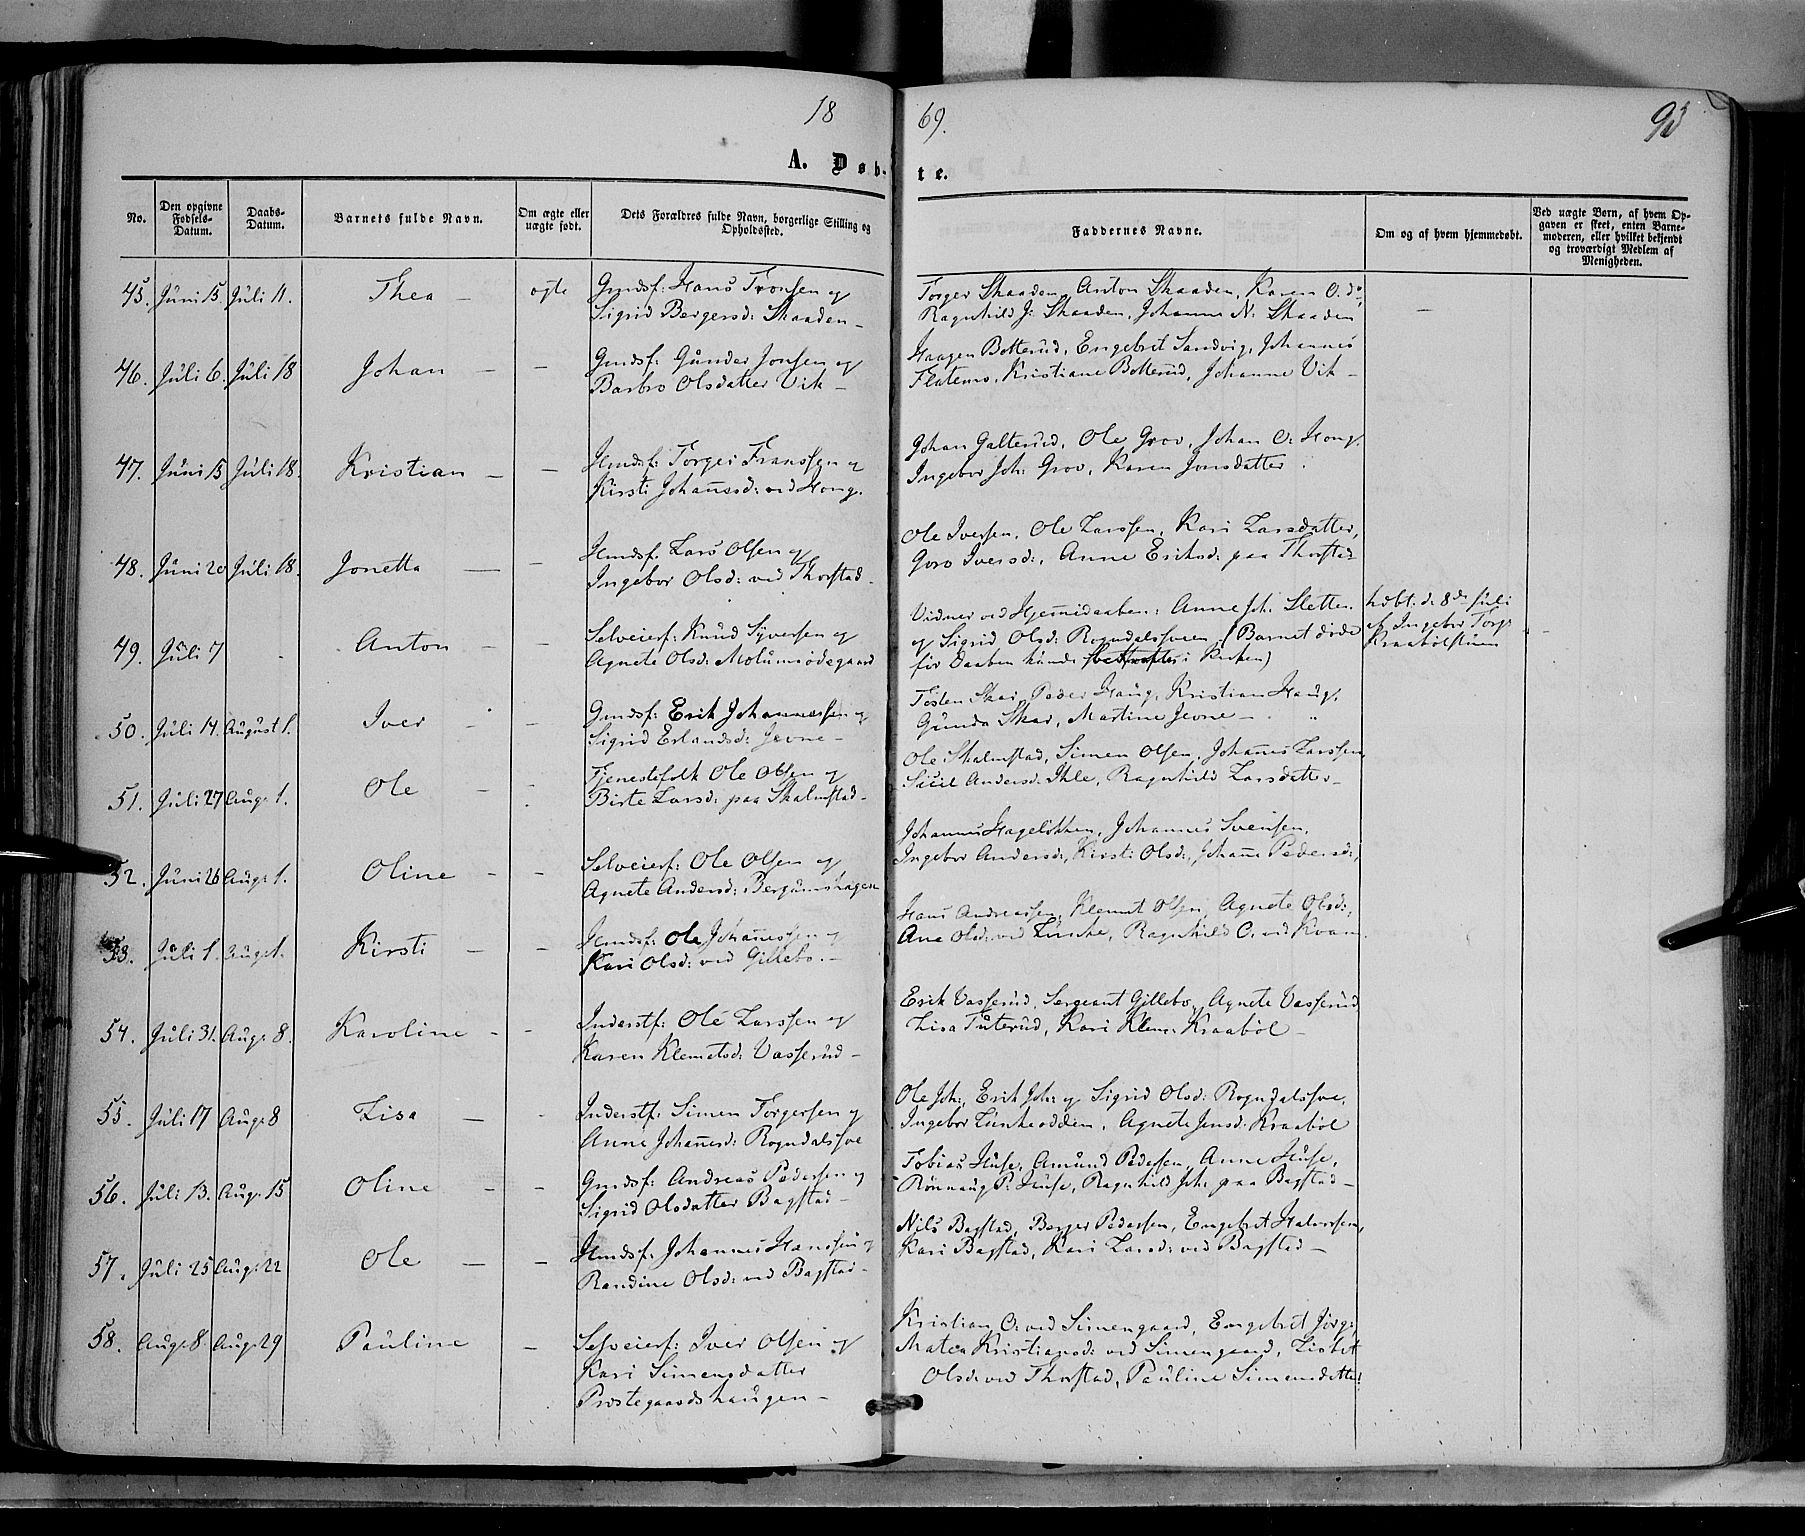 18
69.
93
A. Døb-
te.
No.
Den opgivne Fødsels-Datum.
Daabs-Datum.
Barnets fulde Navn.
Om ægte eller uægte født.
Dets Forældres fulde Navn, borgerlige Stilling og Opholdssted.
Faddernes Navne.
Om og af hvem hjemmedøbt.
Ved uægte Børn, af hvem Op-
gaven er skeet, enten Barne-
moderen, eller hvilket bekjendt
og troværdigt Medlem af
Menigheden.
45. Juni 15. Juli 11. Thea – ægte Gmdsf: Hans Tronsen og
Sigrid Bergersd: Skaaden –
Torger Skaaden, Anton Skaaden, Karen O. do,
Ragnhild J: Skaaden, Johanne N: Skaaden –
46. Juli 6. Juli 18 Johan – – Gmdsf: Gunder Jonsen og
Barbro Olsdatter Vik –
Haagen Botterud, Engebret Sandvig, Johannes
Flatemo, Kristiane Botterud, Johanne Vik –
47. Juni 15 Juli 18. Kristian – – Hmdsf: Torger Franssen og
Kirsti Johannesd: ved Hong.
Johan Galterud, Ole Grov, Johan O: Hong,
Ingebor Joh: Grov, Karen Jonsdatter.
48. Juni 20 Juli 18. Jonetta – – Hmdsf: Lars Olsen og
Ingebor Olsd: ved Thorstad.
Ole Iversen, Ole Larssen, Kari Larsdatter,
Goro Iversd:, Anne Eriksd: paa Thorstad
49. Juli 7 – Anton – – Selveierf: Knud Syversen og
Agnete Olsd: Molumsødegaard
Vidner ved Hjemmedaaben: Anne Joh. Sletten
og Sigrid Olsd: Rogndalsveen (Barnet døde
før Daaben kunde i Kirken)
hdbt. d: 8de Juli
af Ingebor Torg:
Kraabølstuen
50. Juli 14. August 1. Iver – – Gmdsf: Erik Johannessen og
Sigrid Erlandsd: Jevne –
Tosten Skar, Peder Haug, Kristian Haug,
Gunda Skar, Martine Jevne –
51. Juli 27 Aug: 1. Ole – – Tjenestefolk Ole Olsen og
Birte Larsd: paa Skalmstad –
Ole Skalmstad, Simen Olsen, Johannes Larssen,
Sicil Andersd: Ihle, Ragnhild Larsdatter –
52. Juni 26 Aug: 1. Oline – – Selveierf: Ole Olsen og
Agnete Andersd: Bergumshagen
Johannes Hageløkken, Johannes Svensen,
Ingebor Andersd:, Kirsti Olsd:, Johanne Pedersd:,
53. Juli 1. Aug: 1. Kirsti – – Hmdsf: Ole Johannessen og
Kari Olsd: ved Gillebo. –
Hans Andreassen, Klemet Olsen, Agnete Olsd:,
Ane Olsd: ved Lunke, Ragnhild O. ved Kvam.
54. Juli 31. Aug: 8. Karoline – – Inderstf: Ole Larssen og
Karen Klemetsd: Vasserud –
Erik Vasserud, Sergeant Gillebo, Agnete Vasserud
Lisa Tuterud, Kari Klem: Kraabøl –
55. Juli 17 Aug: 8 Lisa – – Inderstf: Simen Torgersen og
Anne Johannesd: Rogndalsve
Ole Joh:, Erik Joh: og Sigrid Olsd: Rogndalsve,
Ingebor Lunkeodden, Agnete Jensd: Kraabøl
56. Juli 13. Aug: 15 Oline – – Gmdsf: Andreas Pedersen og
Sigrid Olsdatter Bagstad –
Tobias Huse, Amund Pedersen, Anne Huse,
Rønnaug P: Huse, Ragnhild Joh: paa Bagstad –
57. Juli 25 Aug: 22 Ole – – Hmdsf: Johannes Hanssen og
Randine Olsd: ved Bagstad –
Nils Bagstad, Berger Pedersen, Engebret Halvorsen,
Kari Bagstad, Kari Larsd: ved Bagstad –
58. Aug: 8. Aug: 29 Pauline – Selveierf: Iver Olsen og
Kari Simensdatter
Prestegaardshaugen –
Kristian O: ved Simengaard, Engebret Jørg:,
Matea Kristiansd: ved Simengaard, Lisbet
Olsd: ved Thorstad, Pauline Simensdatter